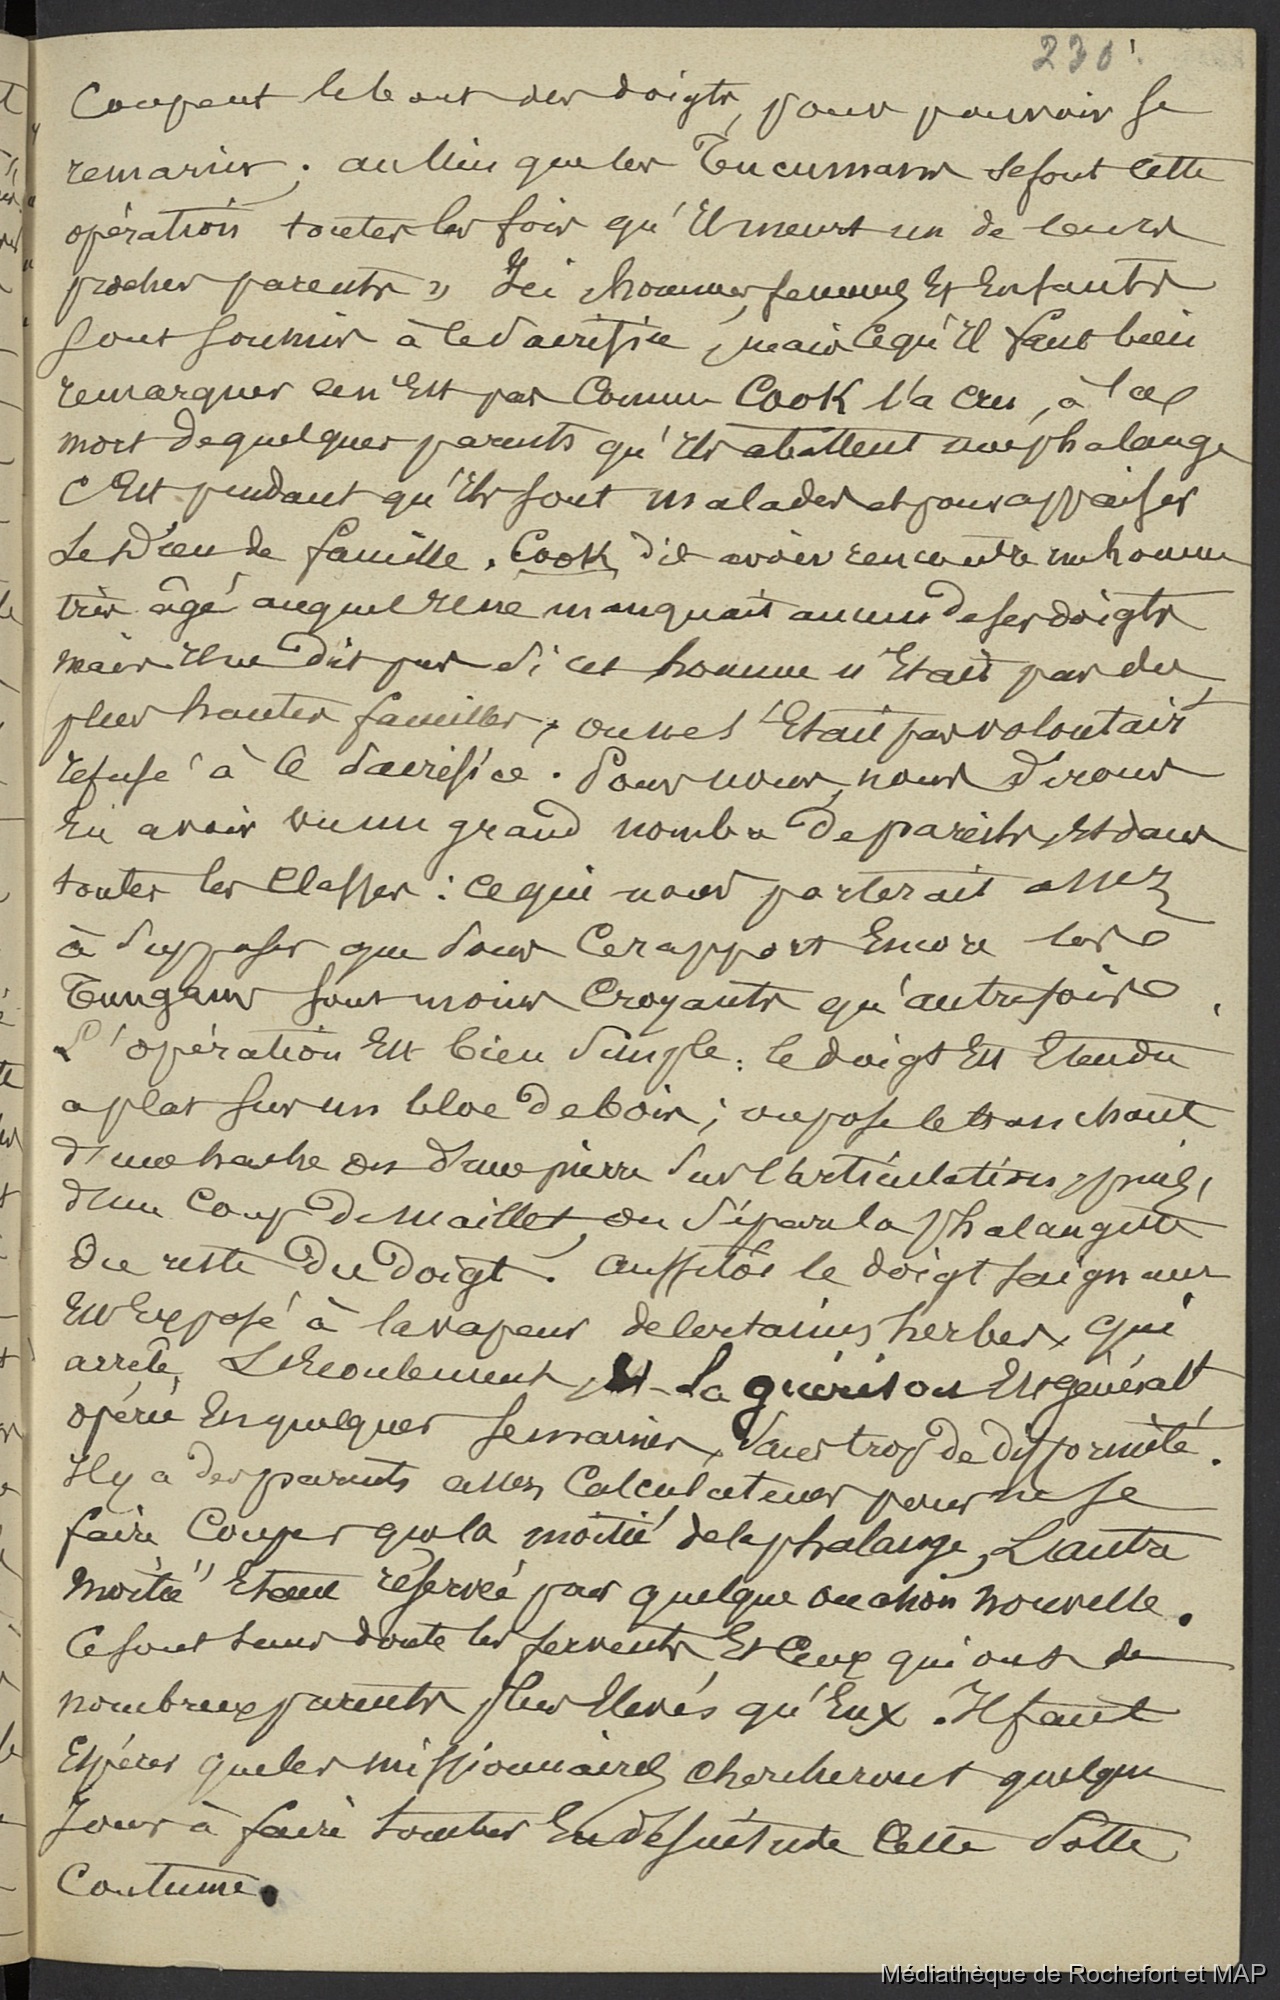 230'.
Coupent le bout des doigts, pour pouvoir se
remarier ; au lieu que les Tucumans se font cette
opération toutes les fois qu'il meurt un de leurs
proches parents » Ici, hommes, femmes et Enfants
sont soumis à ce Sacrifice, mais ce qu'il faut bien
remarquer ce n'est pas Comme Cook l'a cru, à la
mort de quelques parents qu'ils abattent une phalange
C'est pendant qu'ils sont malades et pour appaiser
le Dieu de famille. Cook dit avoir rencontré un homme
très âgé auquel il ne manquait aucun de ses doigts
mais il ne dit pas si cet homme n'était pas des
plus hautes familles, ou ne s'était pas volontairt
refusé à ce Sacrifice. Pour nous, nous dirons
en avoir vu un grand nombre de pareils, et dans
toutes les classes : ce qui nous porterait assez
à supposer que sous ce rapport Encore les
Tungans sont moins Croyants qu'autrefois.
L'opération Est bien simple : le doigt Est Etendu
a plat sur un bloc de bois ; on pose le tranchant
d'une hache ou d'une pierre sur l'articulation, puis,
d'un coup de maillet, on sépare la phalangette
du reste du doigt. Aussitôt le doigt saignant
Est Exposé à la vapeur de certaines herbes, qui
arrête L'Ecoulement, et la guérison Est généralt
opérée En quelques semaines, sans trop de difformité.
Il y a des parents assez Calculateurs pour ne se
faire Couper que la moitié de la phalange, L'autre
moitié Etant réservée pour quelque occasion nouvelle.
Ce sont sans doute les fervents Et Ceux qui ont de
nombreux parents plus Elevés qu'Eux. Il faut
Espérer que les missionnaires chercheront quelque
Jour à faire tomber En désuétude Cette Sotte
Coutume.
Médiathèque de Rochefort et MAP